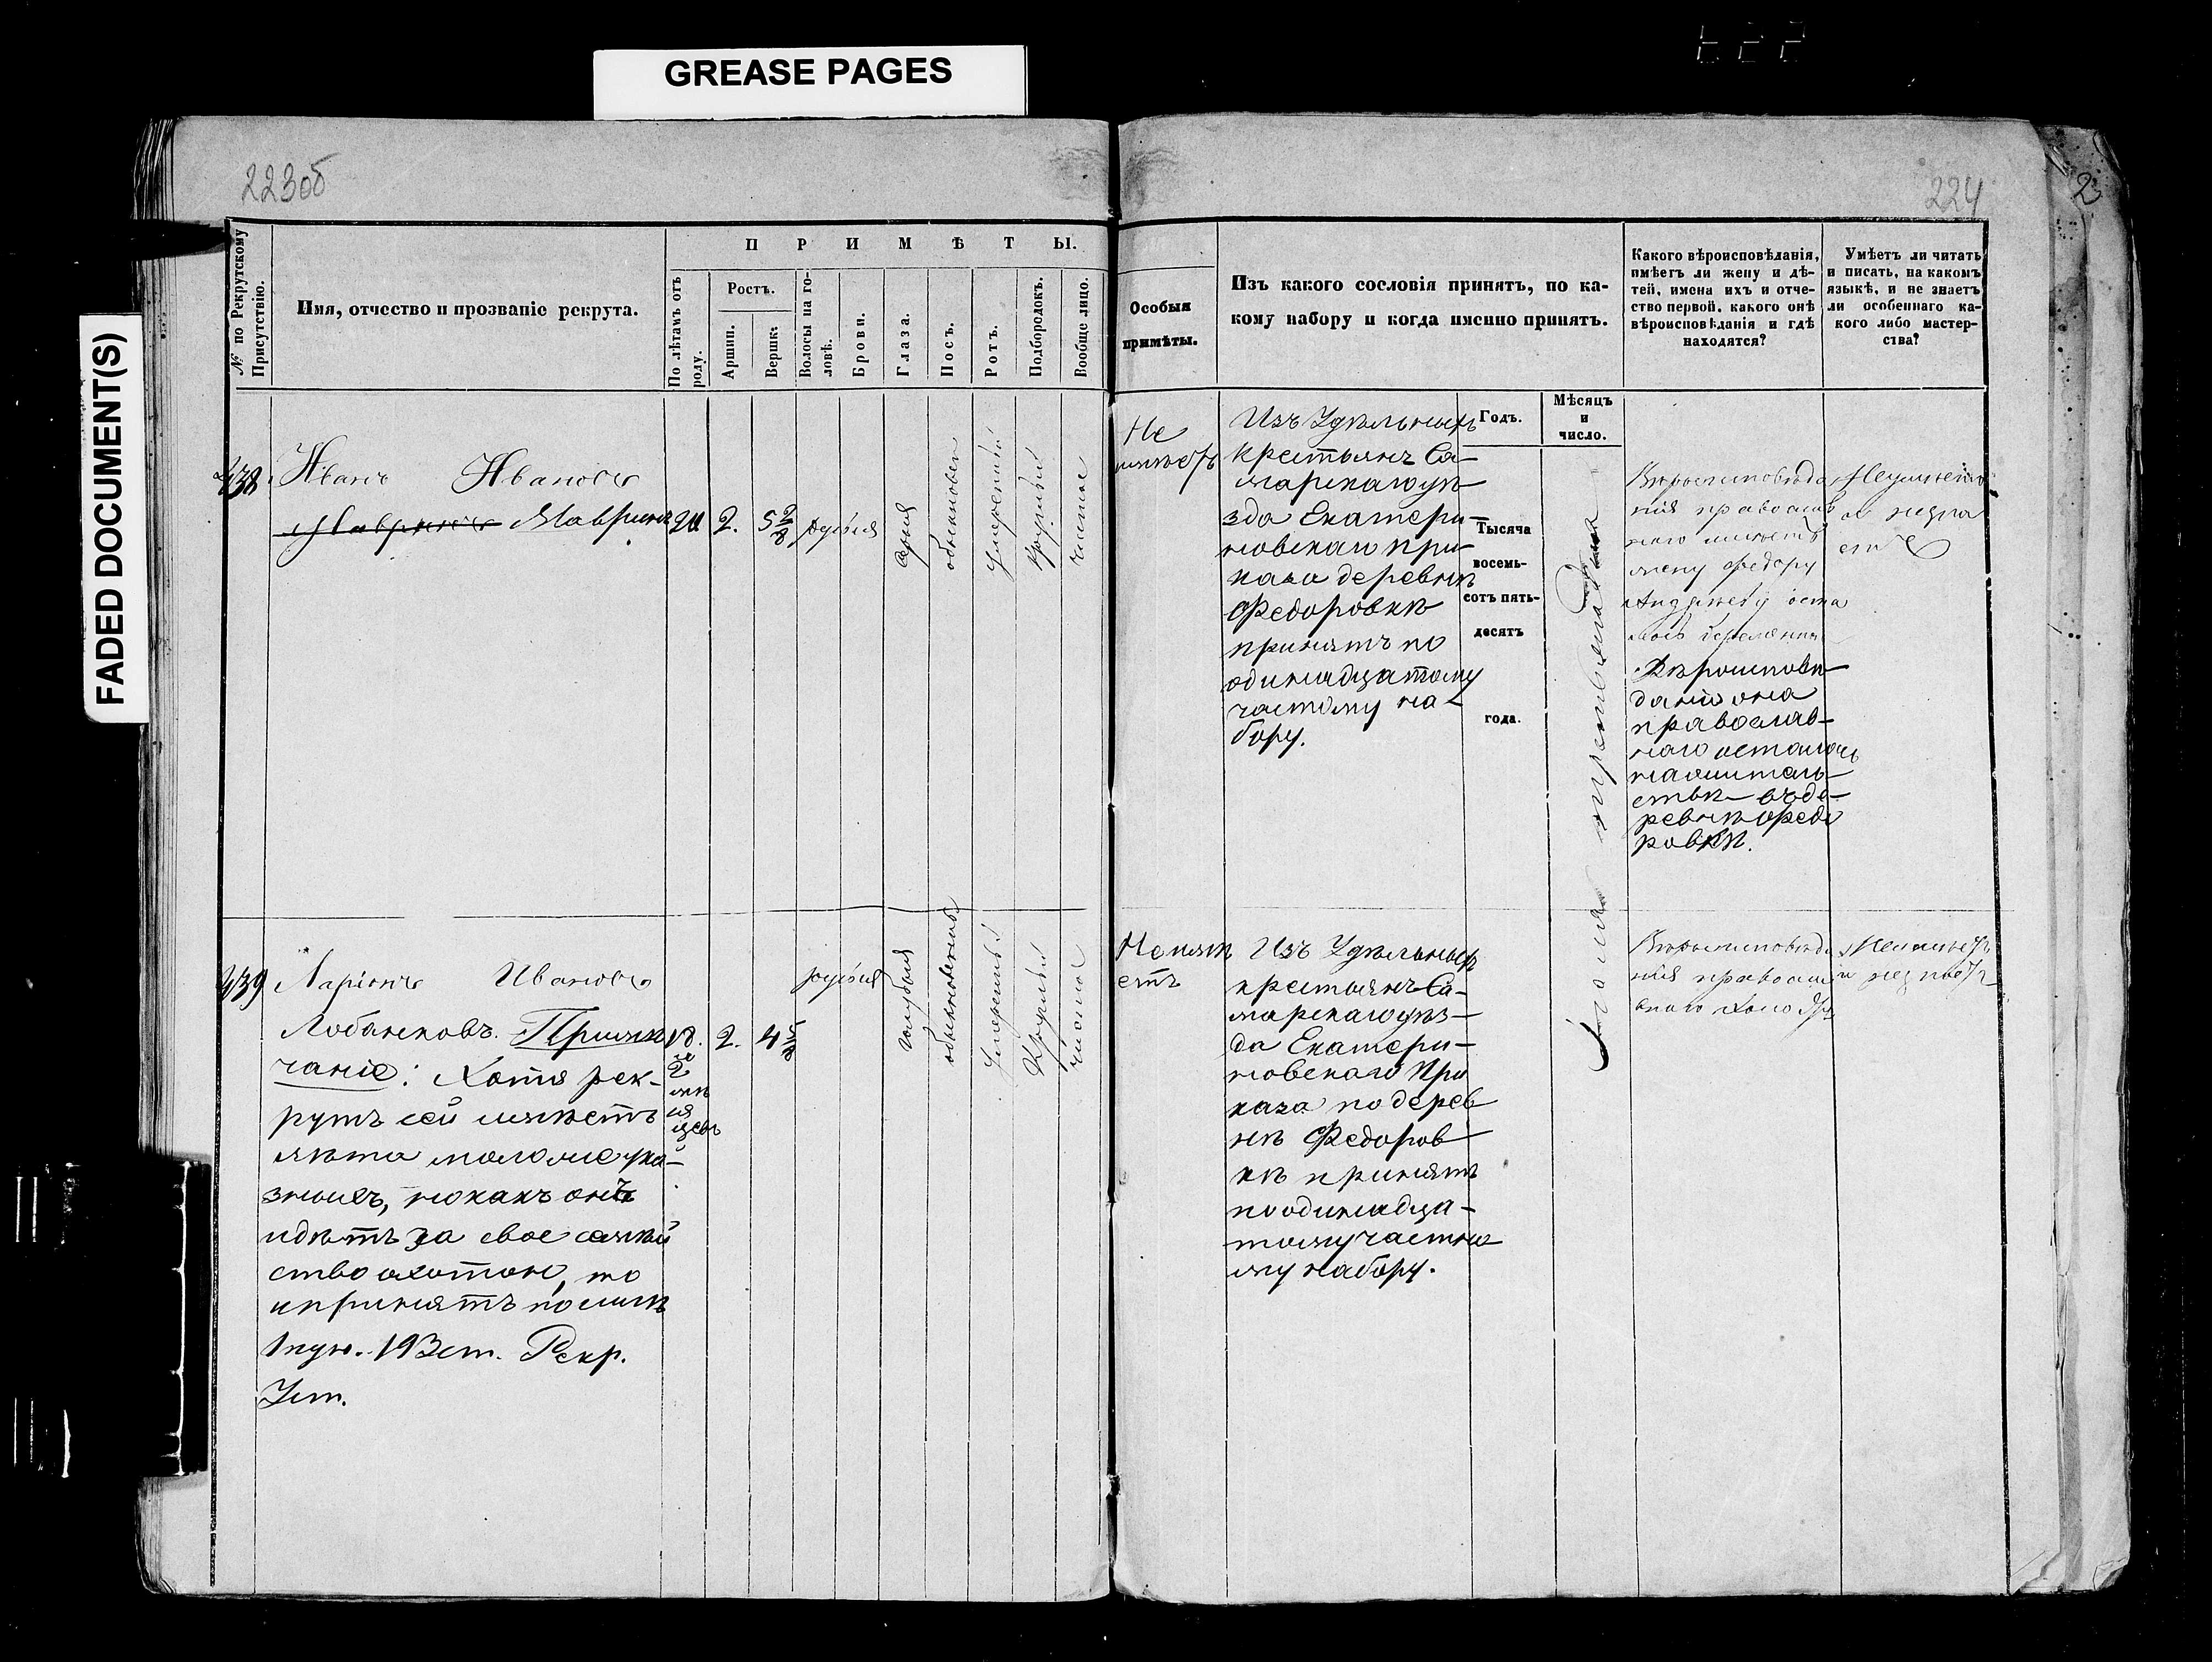 GREASE PAGES
FADED DOCUMENT(S)
223об
224
2
№ по Рекрутскому
Присутствію.
Имя, отчество и прозваніе рекрута.
ПРИМѢТЫ.
По лѣтамъ отъ
роду.
Ростъ.
Аршин.
Вершк.
Волосы на го-
ловѣ.
Брови.
Глаза.
Носъ.
Ротъ.
Подбородокъ.
Вообще лицо.
Особыя
примѣты.
Изъ какого сословія принятъ, по ка-
кому набору и когда именно принятъ.
Какого вѣроисповѣданія,
имѣетъ ли жену и дѣ-
тей, имена ихъ и отче-
ство первой, какого онѣ
вѣроисповѣданія и гдѣ
находятся?
Умѣетъ ли читать
и писать, на какомъ
языкѣ, и не знаетъ
ли особеннаго ка-
кого либо мастер-
ства?
Годъ.
Мѣсяцъ
и
число.
Тысяча
восемь-
сотъ пять-
десятъ
года.
438
Иванъ Ивановъ
Мавринъ
20
2.
5 2/8
русыя
сѣрыя
обыкновен
умѣренный
круглый
чистое
Не
имѣетъ
Изъ Удѣльныхъ
крестьянъ Са-
марскаго уѣ-
зда Екатери-
новскаго при-
каза деревнѣ
Федоровкѣ
принятъ по
одинадцатому
частному на-
бору.
Вѣроисповѣда
нія православ
наго имѣетъ
жену Федору
Андрѣеву оста
Вѣроисповѣ-
данія она
православ-
наго осталась
на житель-
ствѣ въ де-
ревнѣ Федо
ровкѣ.
439
Ларіонъ Ивановъ
Лобанковъ. Примѣ
чаніе: Хотя рек-
рутъ сей имѣетъ
лѣта моложе ука-
зныхъ, но какъ онъ
идѣтъ за свое семѣй
ство охотою, то
и принятъ по силѣ
1 пун. 193 ст. Рекр.
Уст.
18.
2.
4
русыя
голубыя
обыкновенный
умѣренный
круглый
чистое
Не имѣ
етъ
Изъ Удѣльныхъ
крестьянъ Са-
марскаго уѣз-
да Екатери-
новскаго При
каза по дерев
нѣ Федоров
кѣ принятъ
по одинадца-
тому частно
му набору.
Вѣроисповѣда
нія православ
наго холостъ